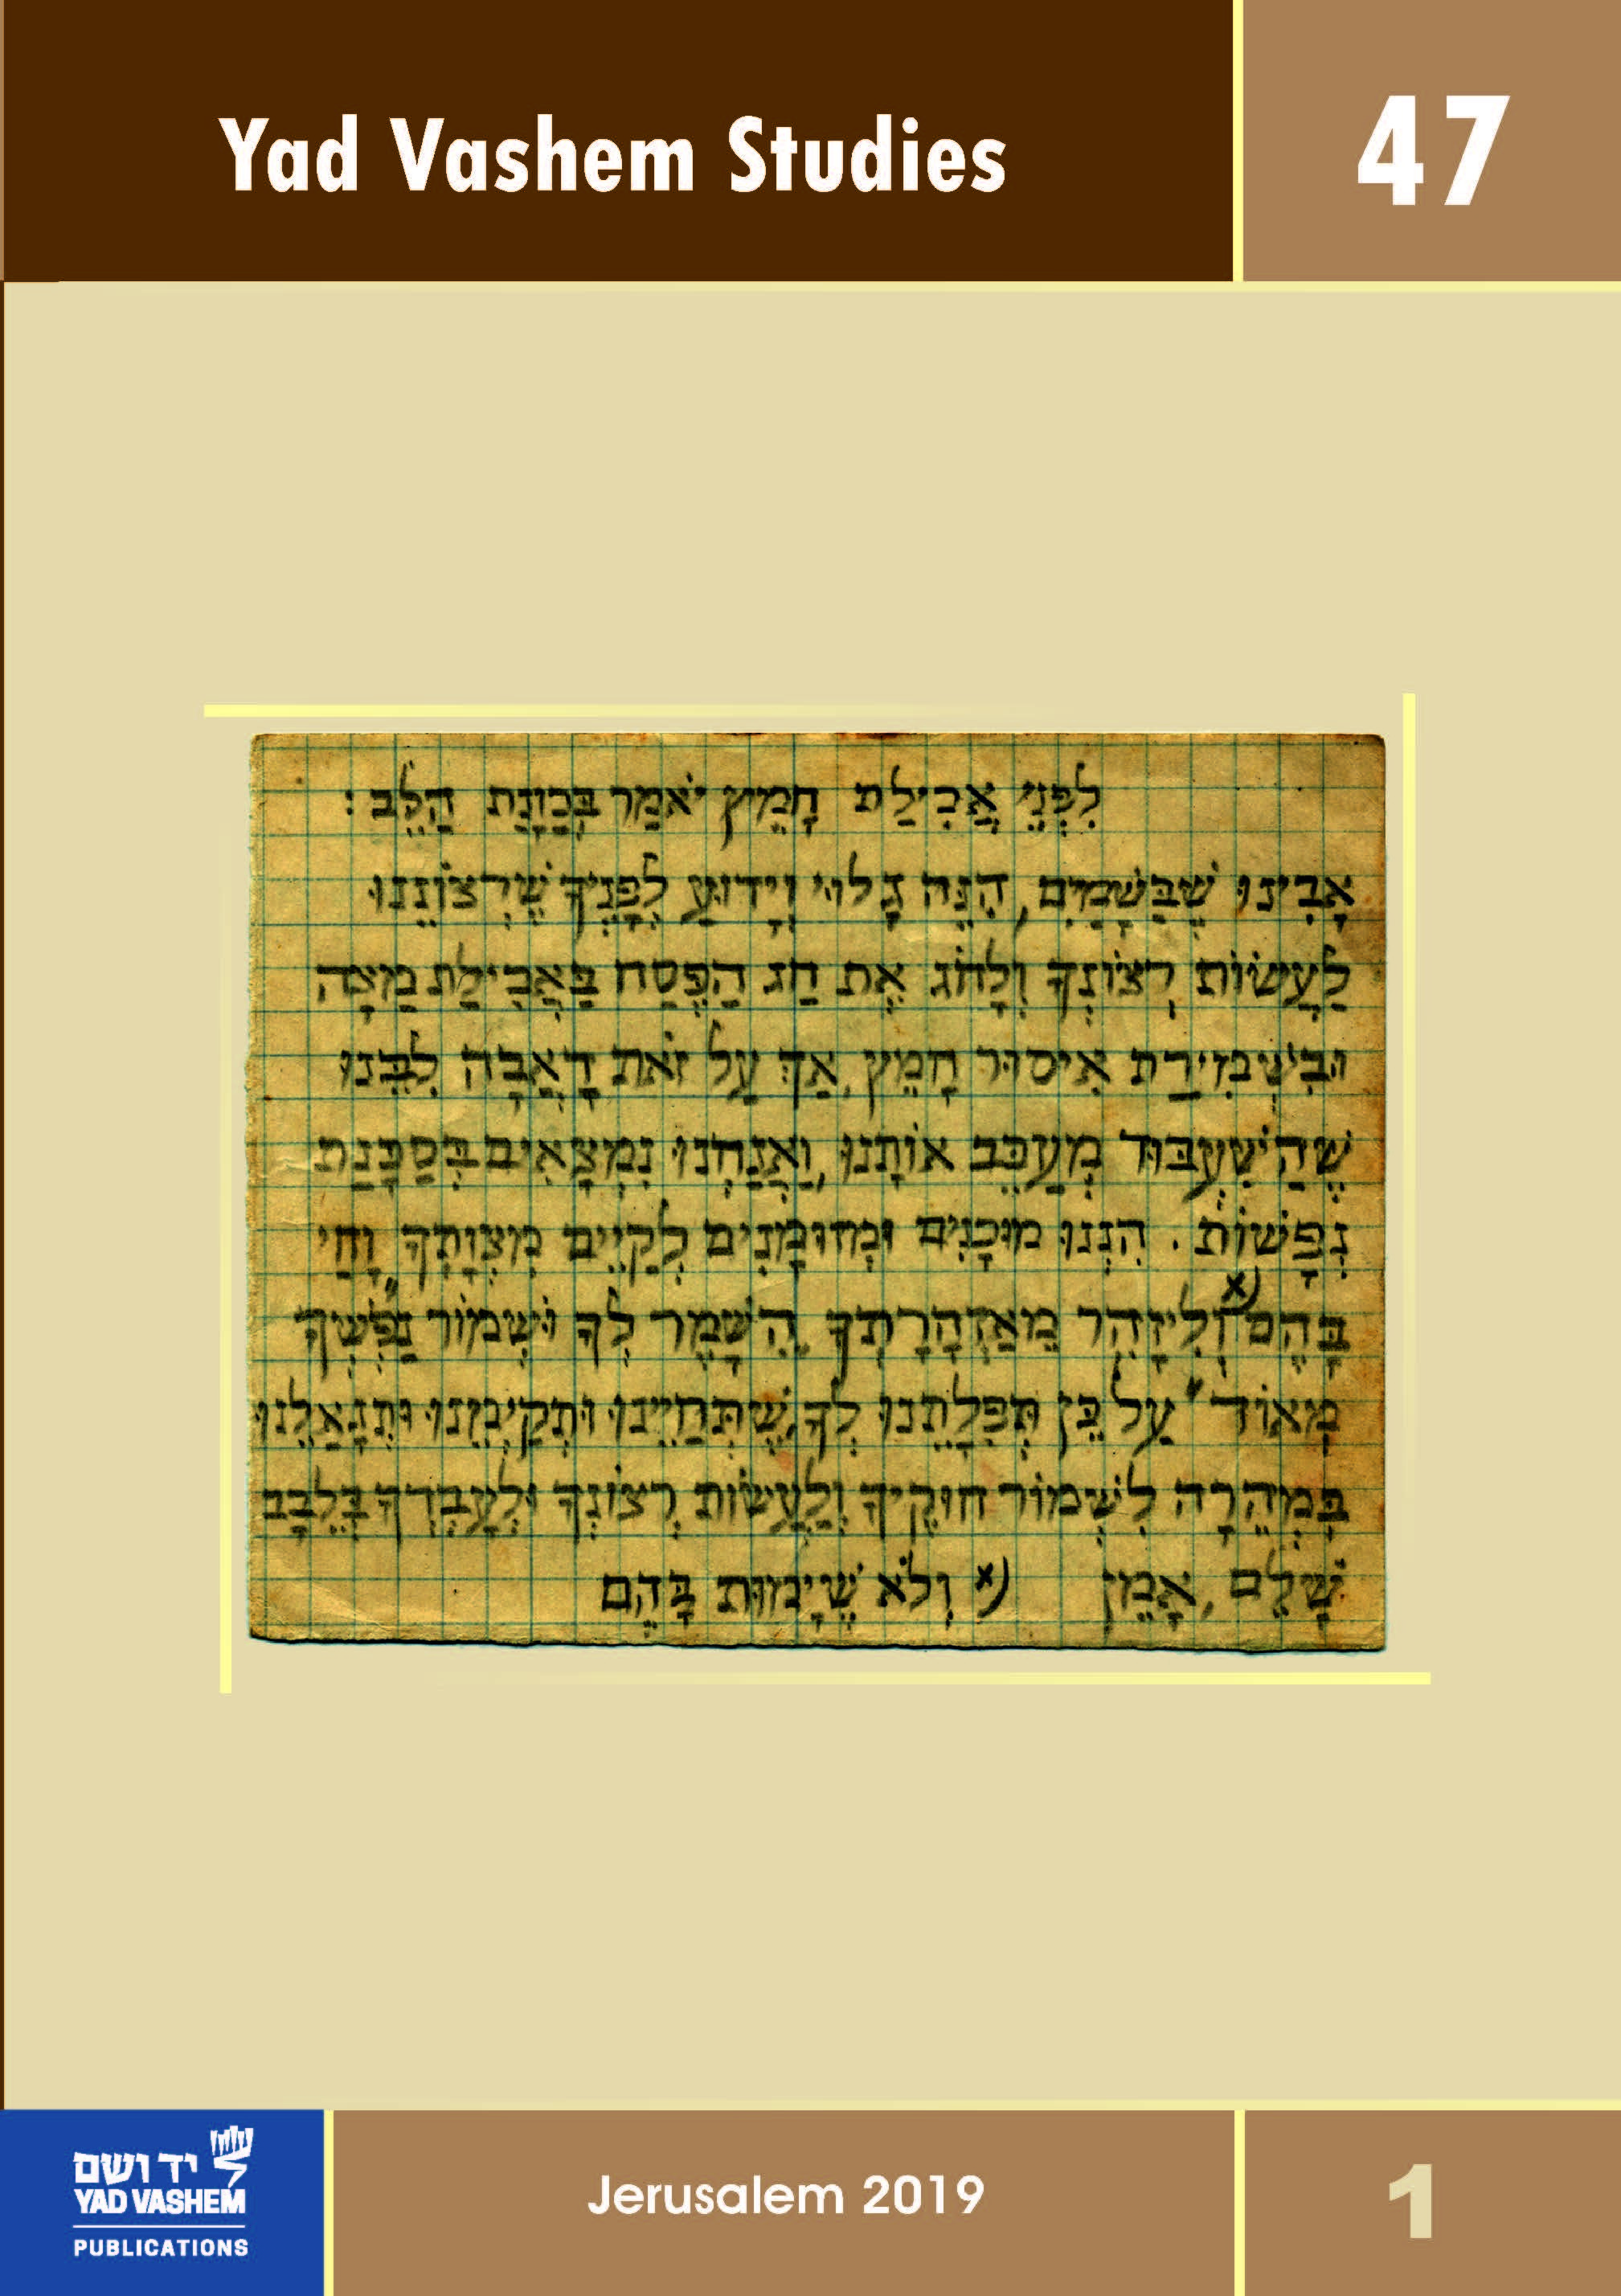 Yad Vashem Studies
47
לִפְנֵי אֲכִילַת חָמֵץ יֹאמַר בְּכַוָּנַת הַלֵּב :
אָבִינוּ שֶׁבַּשָּׁמַיִם, הִנֵּה גָּלוּי וְיָדוּעַ לְפָנֶיךָ שֶׁרְצוֹנֵנוּ
לַעֲשׂוֹת רְצוֹנְךָ וְלָחֹג אֶת חַג הַפֶּסַח בַּאֲכִילַת מַצָּה
וּבִשְׁמִירַת אִיסוּר חָמֵץ, אַךְ עַל זֹאת דָּאֲבָה לִבֵּנוּ
שֶׁהַשִּׁעְבּוּד מְעַכֵּב אוֹתָנוּ, וַאֲנַחְנוּ נִמְצָאִים בְּסַכָּנַת
נְפָשׁוֹת. הִנְנוּ מוּכָנִים וּמְזוּמָנִים לְקַיֵּים מִצְוָתְךָ "וָחַי
בָּהֶם x) וְלִיזָהֵר מֵאַזְהָרָתְךָ "הִשָּׁמֶר לְךָ וּשְׁמוֹר נַפְשְׁךָ
מְאוֹד" עַל כֵּן תְּפִלָּתֵנוּ לְךָ, שֶׁתְּחַיֵּינוּ וּתְקַיְּימֵינוּ וְתִגְאָלֵנוּ
בִּמְהֵרָה לִשְׁמוֹר חוּקֶיךָ וְלַעֲשׂוֹת רְצוֹנְךָ וּלְעָבְדְךָ בְּלֵבָב
שָׁלֵם, אָמֵן x) וְלֹא שֶׁיָּמוּת בָּהֶם
יד ושם
YAD VASHEM
PUBLICATIONS
Jerusalem 2019
1